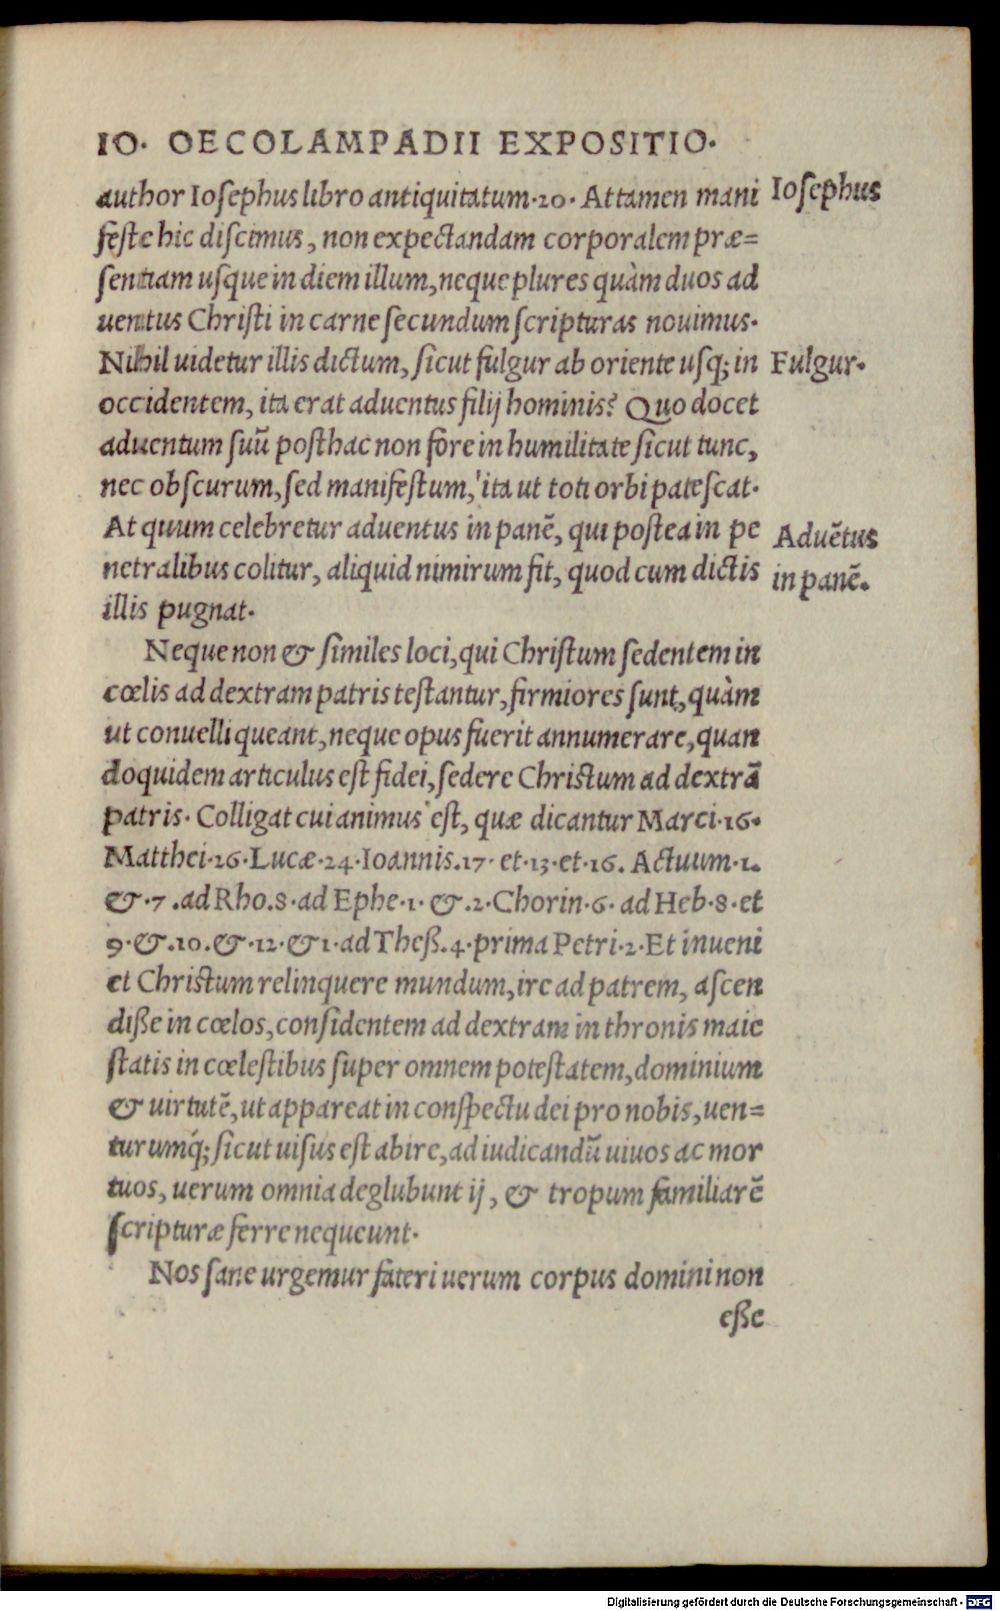 IO. OECOLAMPADII EXPOSITIO.
author Iosephus libro antiquitatum.20. Attamen mani
feste hic discimus, non expectandam corporalem præ=
sentiam usque in diem illum, neque plures quàm duos ad
uentus Christi in carne secundum scripturas nouimus.
Nihil uidetur illis dictum, sicut fulgur ab oriente usq; in
occidentem, ita erat aduentus filij hominis? Quo docet
aduentum suũ posthac non fore in humilitate sicut tunc,
nec obscurum, sed manifestum, ita ut toti orbi patescat.
At quum celebretur aduentus in panẽ, qui postea in pe
netralibus colitur, aliquid nimirum fit, quod cum dictis
illis pugnat.
Neque non & similes loci, qui Christum sedentem in
cœlis ad dextram patris testantur, firmiores sunt, quàm
ut conuelli queant, neque opus fuerit annumerare, quan
doquidem articulus est fidei, sedere Christum ad dextrã
patris. Colligat cui animus est, quæ dicantur Marci.16.
Matthei.26.Lucæ.24.Ioannis.17. et.13.et.16. Actuum.1.
&.7.ad Rho.8.ad Ephe.1.&.2.Chorin.6.ad Heb.8.et
9.&.10.&.12.&1.ad Theß.4.prima Petri.2.Et inueni
et Christum relinquere mundum, ire ad patrem, ascen
diße in cœlos, considentem ad dextram in thronis maie
statis in cœlestibus super omnem potestatem, dominium
& uirtutẽ, ut appareat in conspectu dei pro nobis, uen=
turumq́; sicut uisus est abire, ad iudicandũ uiuos ac mor
tuos, uerum omnia deglubunt ij, & tropum familiarẽ
scripturæ ferre nequeunt.
Nos sane urgemur fateri uerum corpus domini non
eße
Iosephus
Fulgur.
Aduẽtus
in panẽ.
Digitalisierung gefördert durch die Deutsche Forschungsgemeinschaft - DFG